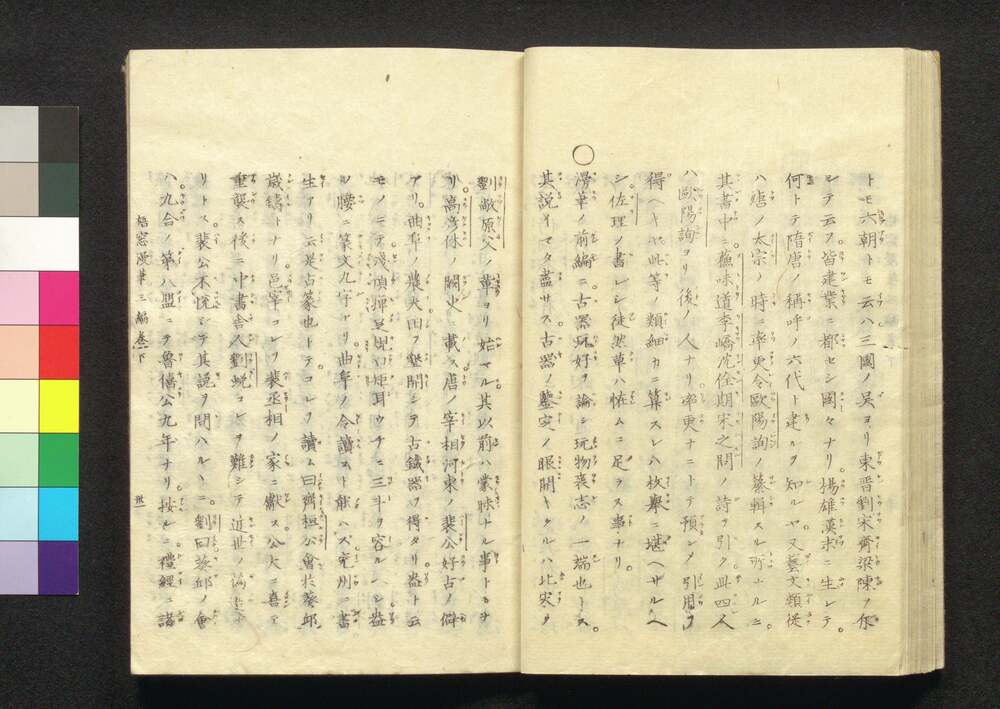 トモ六朝トモ云ハ三國ノ呉ヨリ東晋劉宋齊梁陳ヲ
シテ云フ皆建業ニ都セシ國々ナリ揚雄漢末ニ生レテ
何トテ隋唐ノ稱呼ノ六代ト建ルヲ知ルヤ又藝文類従
ハ唐ノ太宗ノ時ニ率更令歐陽詢ノ纂輯スル所ナルニ
其書中ニ蘇味道李嶠沈佺期宋之問ノ詩ヲ引ク此四人
ハ歐陽詢ヨリ後ノ人ナリ率更ナニトテ預シメ引用ヲ
得ヘキヤ此等ノ類細カニ算スレハ枚擧ニ堪ヘサルヘ
シ佐理ノ書レシ徒然草ハ怪ムニ足ラス事ナリ
○
滑華ノ前編ニ古器玩好ヲ論シ玩物喪志ノ一端也トス
其説イマタ盡サス古器ノ鑒定ノ眼開キタルハ北宋ノ
劉敞原父ノ輩ヨリ始マル其以前ハ蒙昧ナル事トモナ
リ高彦休ノ闕史ニ載ス唐ノ宰相河東ノ裴公好古ノ僻
アリ曲阜ノ農夫田ヲ墾開シテ古鐵器ヲ得タリ盎ト云
モノニテ淺項痺足兕口矩耳ウチニ三斗ヲ容ルヘシ盎
ル腰ニ篆文九字アリ曲阜ノ令讀ヿ能ハス兗州ニ書
生アリ云是古篆也トテコレヲ讀ム曰齊桓公會於葵邱
歳鑄トナリ邑宰コレヲ裴丞相ノ家ニ獻ス公大ニ喜テ
重襲ス後ニ中書舎人劉蛻コレヲ難シテ近世ノ僞
リトス裴公不悦シテ其説ヲ問ハルヽニ劉曰葵邱ノ會
ハ九合ノ第八盟ニテ魯僖公九年ナリ按ルニ禮經ニ諸
梧窓漫筆三編巻下